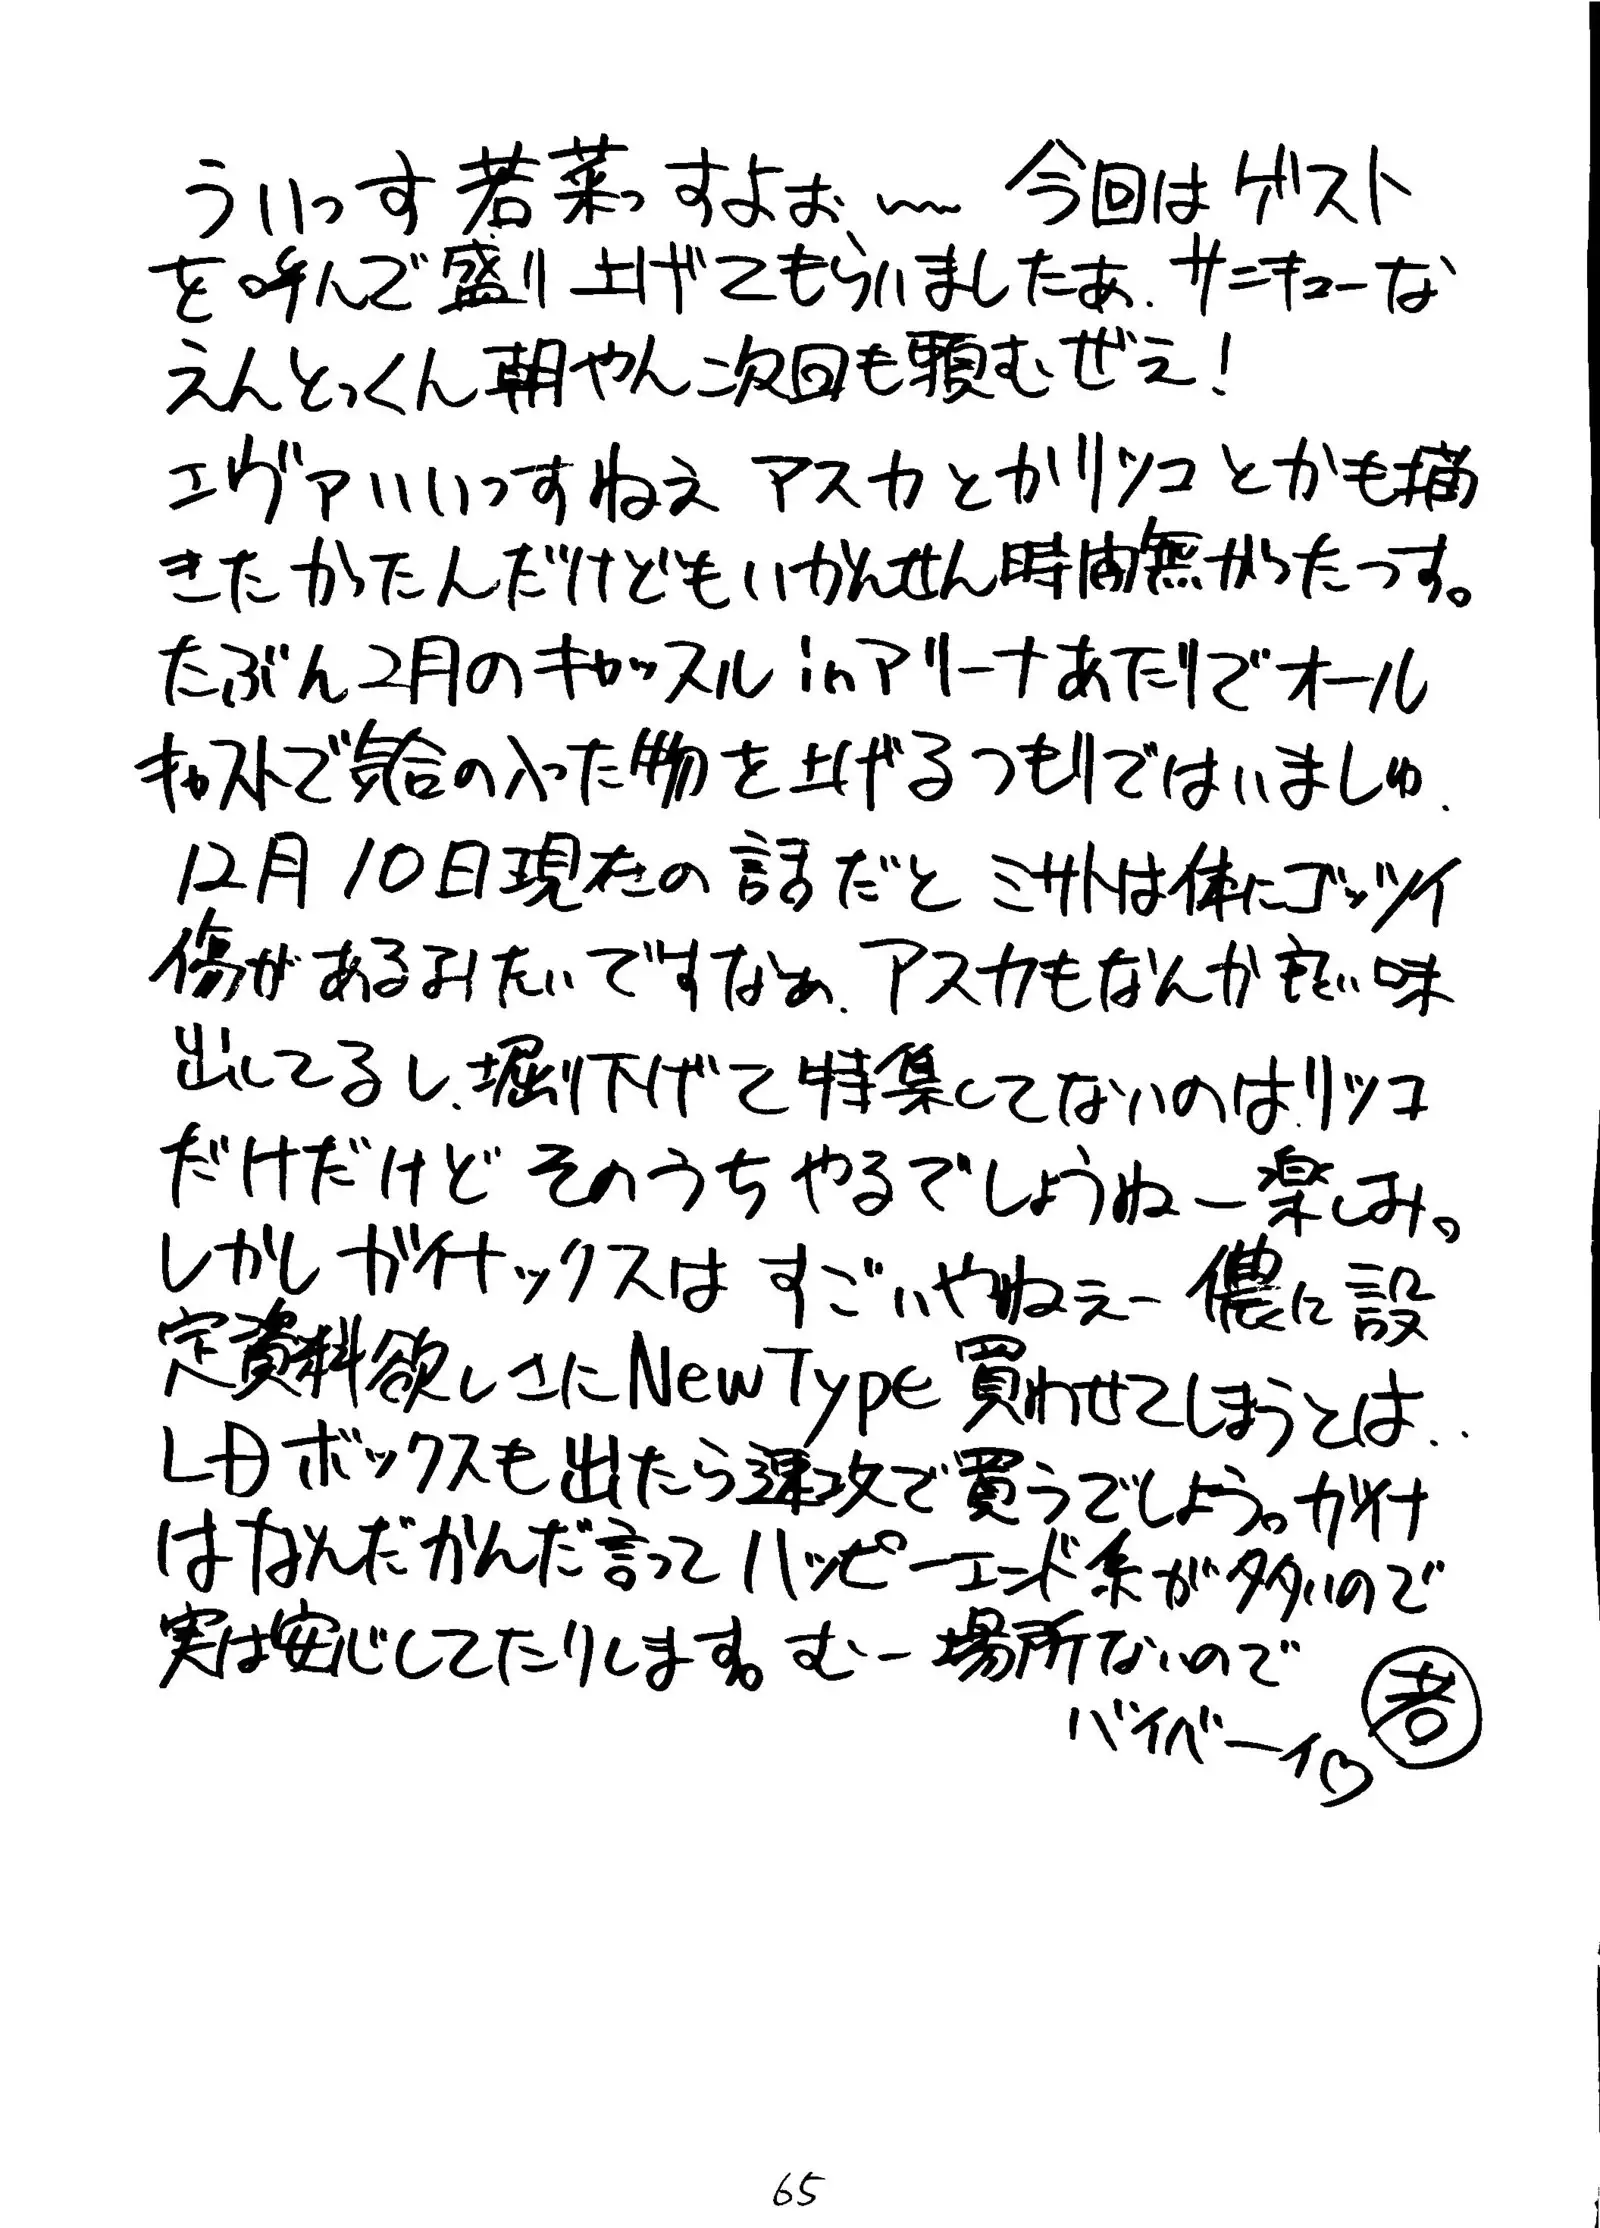 ういっす 若菜っすよぉ、〜 今回はゲスト
を呼んで盛り上げてもらいましたぁ、サニキューな
えんとっくん朝やん次回も頼むぜえ!
エヴァいいっすねえ アスカとかリツコとかも描
きたかったんだけどもいかんせん時間無かったっす。
たぶん2月のキャッスルinアリーナあたりでオール
キャストで気合の入った物を上げるつもりではいましゅ、
12月10日現在の話だと ミサトは体にゴッツイ
傷があるみたいですなぁ、アスカもなんか良い味
出してるし、掘り下げて特集してないのは、リツコ
だけだけど そのうちやるでしょうねー楽しみ。
しかしガイナックスは すごいやねぇー 儂に設
定資料欲しさにNewType買わせてしまうとは‥
LDボックスも出たら速攻で買うでしょう。ガイナ
はなんだかんだ言ってハッピーエンド系が多いので
実は安心してたりします。むー場所ないので
バイバーイ♡ 若
65